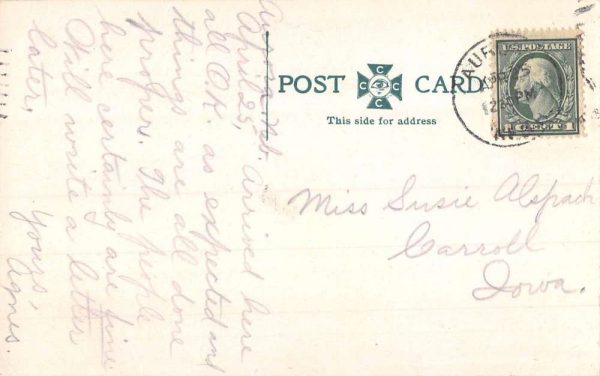 Aurora Neb.
April 25, Arrived here
all O.K. as expected and
things are all done
proper. The people
here certainly are fine
Will write a letter
later.
Yours,
Agnes.
POST CARD
C C C C
This side for address
U.S. POSTAGE
1 CENT 1
AUR
12
Miss Susie Alspach
Carroll
Iowa.